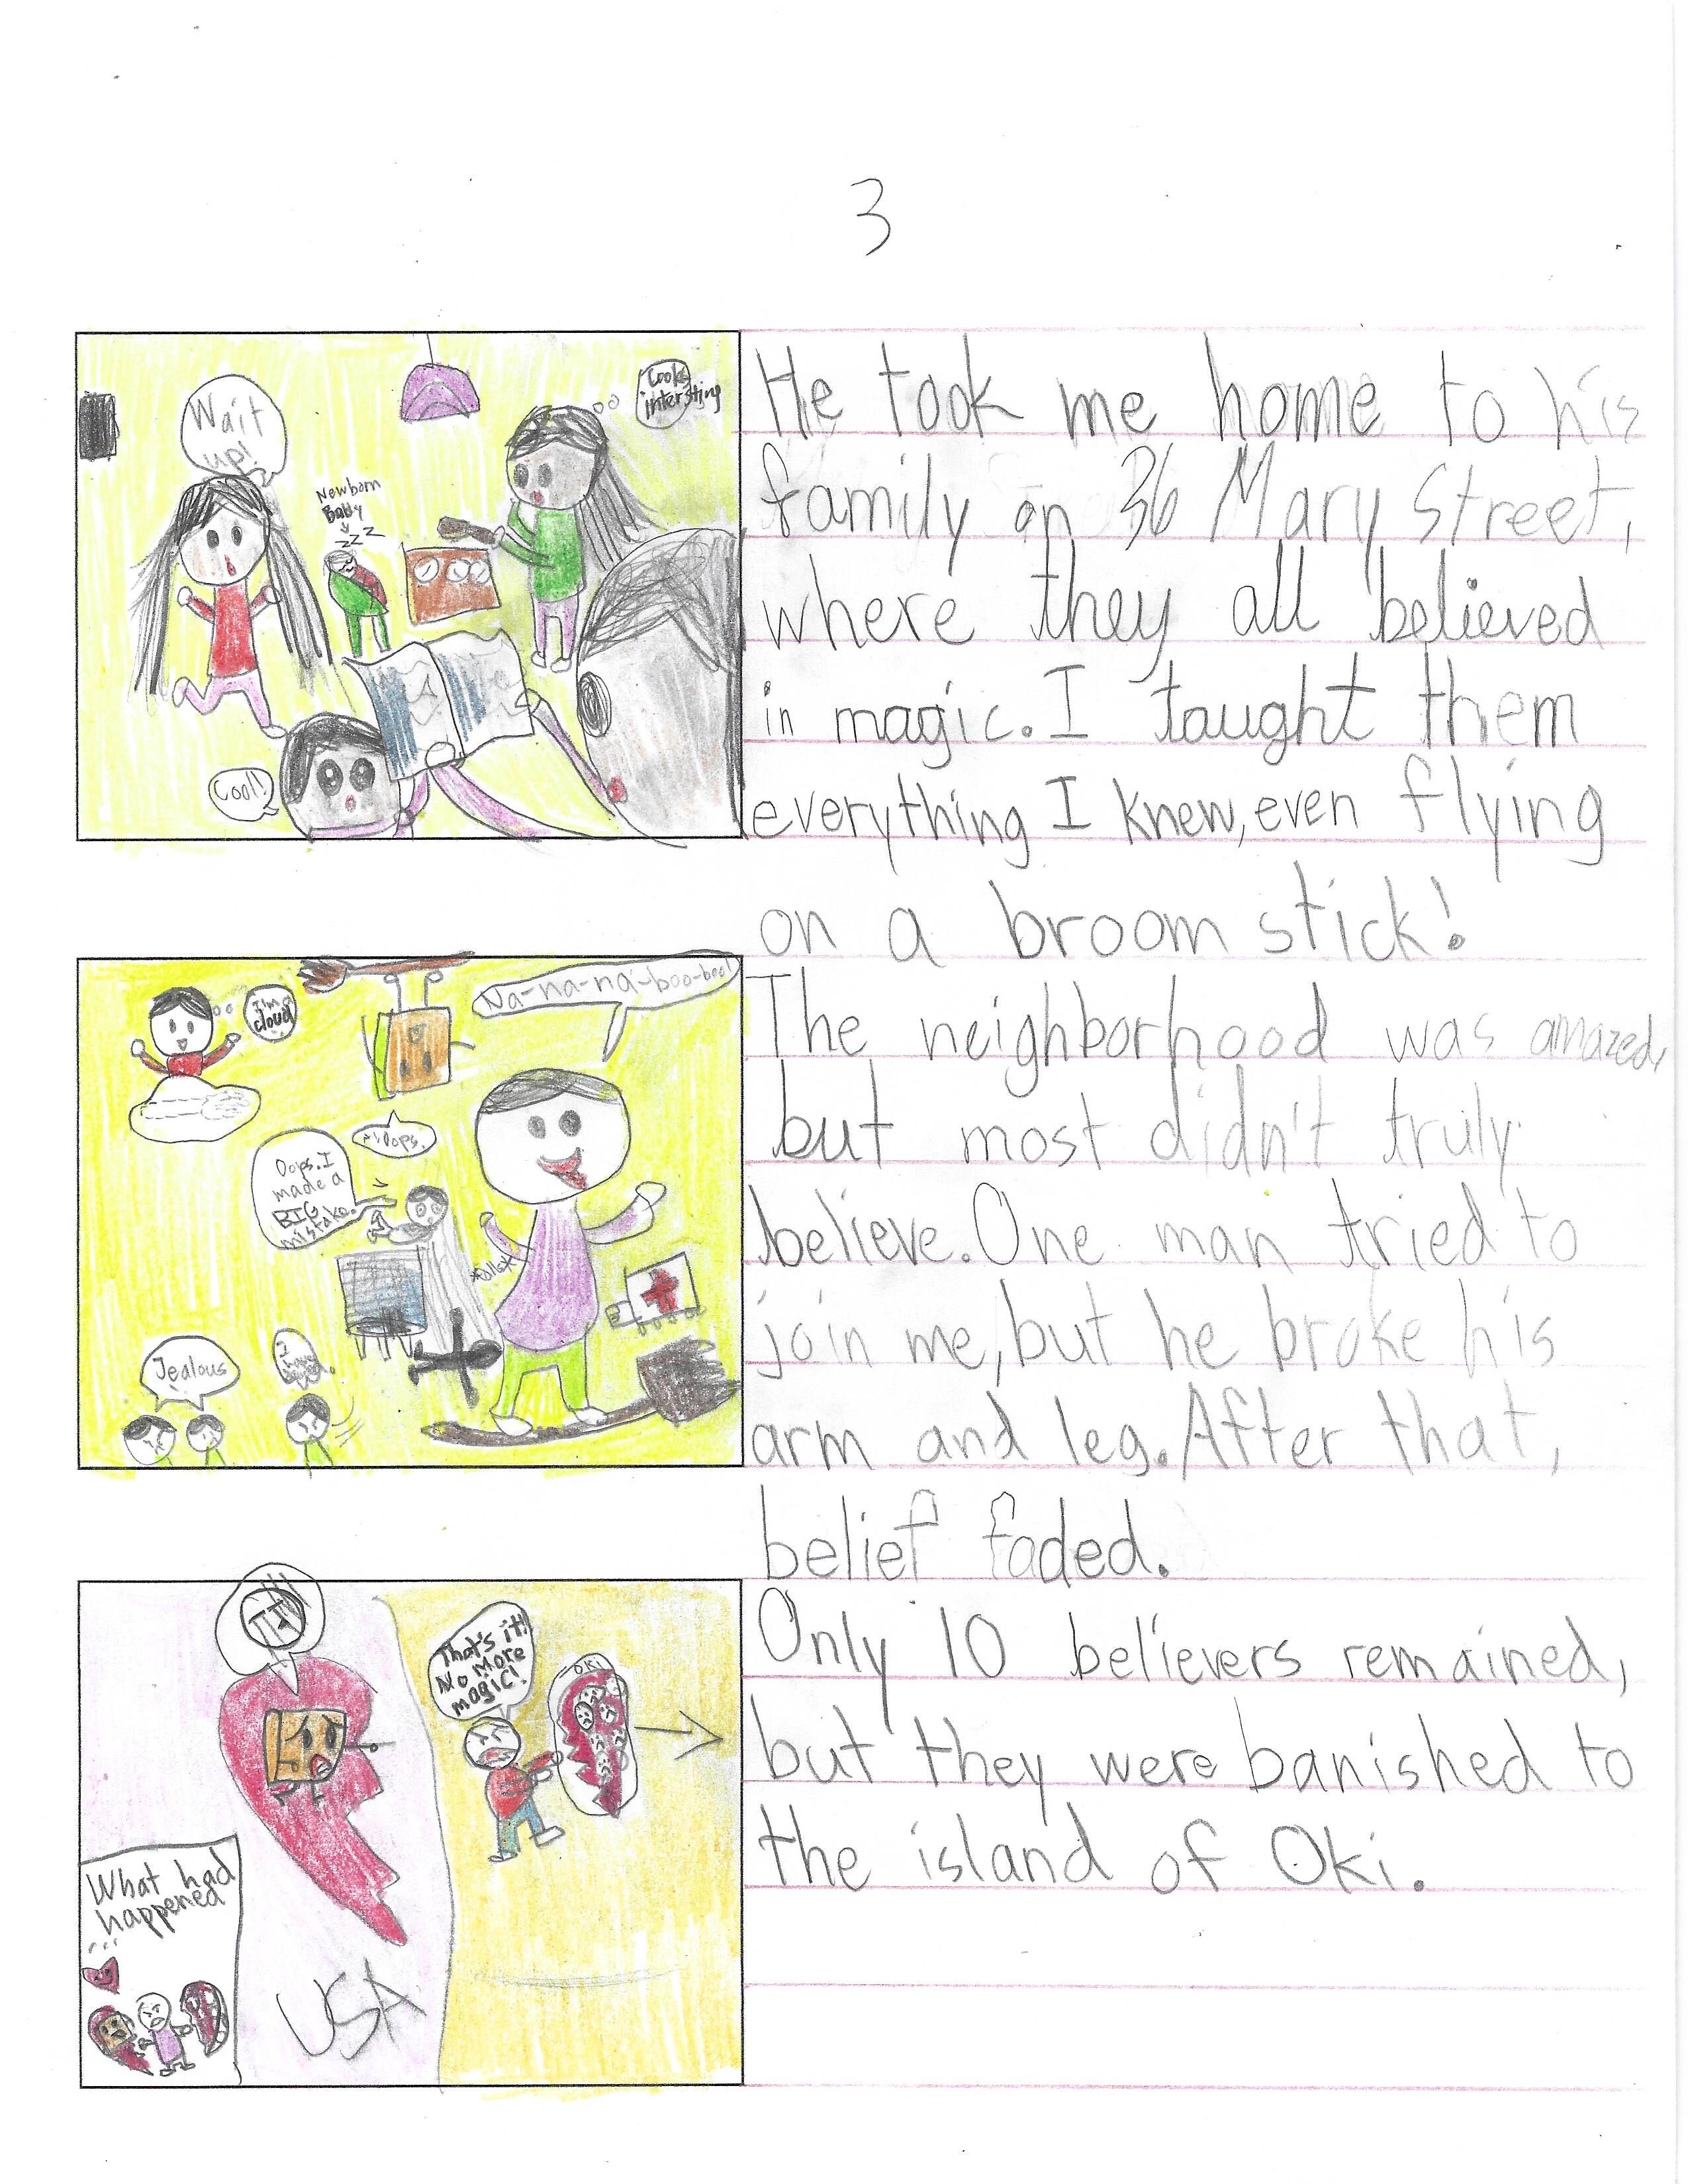 3
Wait
up!
Newborn
Baby
zzz
Looks
intersting
Cool!
He took me home to his
family on 36 Mary Street,
where they all believed
in magic. I taught them
everything I knew, even flying
on a broom stick!
I'm a
cloud
Na-na-na-boo-boo!
Oops.
Oops. I
made a
BIG
mistake.
Jealous
I have
The neighborhood was amazed,
but most didn't truly
believe. One man tried to
join me, but he broke his
arm and leg. After that,
belief faded.
That's it!
No more
magic!
OKI
What had
happened
...
USA
Only 10 believers remained,
but they were banished to
the island of Oki.